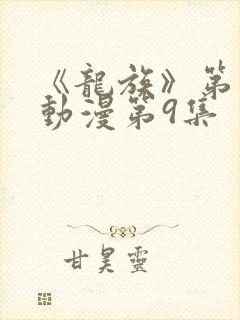 《龍族》第
動漫第9集
甘昊靈